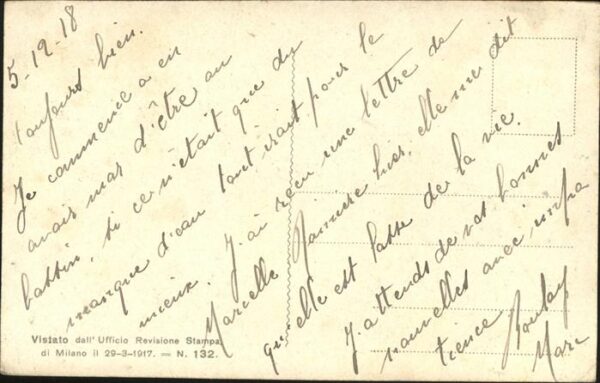 5-12-18
toujours bien.
Je commence a en
avoir mar d'être au
battin, si ce n'était que du
manque d'eau tout irait pour le
mieux. J'ai reçu une lettre de
Marcelle hier, elle me dit
qu'elle est lasse de la vie.
J'attends de vos bonnes
nouvelles avec impa
tience
Marc
Vistato dall'Ufficio Revisione Stampa
di Milano il 29-3-1917. — N. 132.